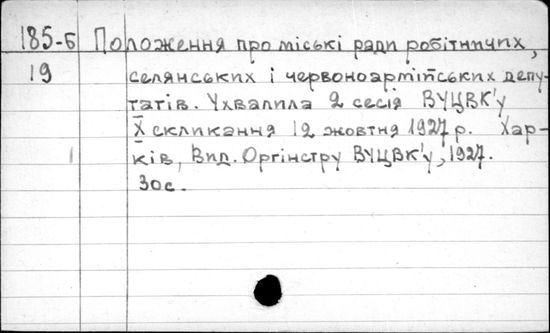 185-Б Положення про міські ради робітничих,
19 селянських і червоноармійських депу-
татів. Ухвалила 2 сесія ВУЦВК'у
X скликання 12 жовтня 1927 р. Хар-
1 ків, Вид. Оргінстру ВУЦВК'у, 1927.
30с.